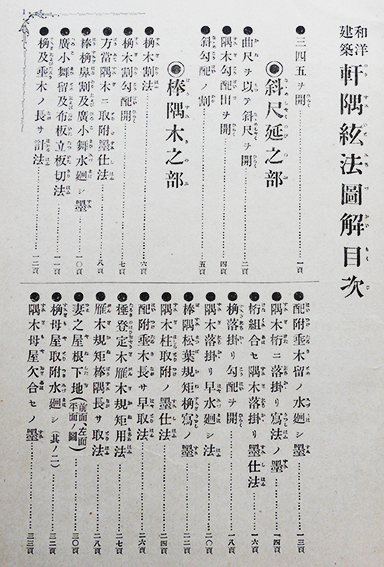 和洋建築 軒隅絃法圖解目次
●三四五ヲ開ク……一頁
◉斜尺延之部
●曲尺ヲ以テ斜尺ヲ開ク……二頁
●隅木勾配出ヲ開ク……四頁
●斜勾配ノ割……五頁
◉棒隅木之部
●桷木割法……六頁
●桷木割勾配開……七頁
●方當隅木ニ取附墨仕法……八頁
●棒桷鼻割及廣小舞水廻シ墨……一〇頁
●廣小舞留及布板立板切法……一一頁
●桷及垂木ノ長サ計法……一二頁
●配附垂木留ノ水墨……一三頁
●隅木桁ニ落掛リ寫法ノ墨……一四頁
●桁組合セ隅木落掛リ墨仕法……一六頁
●桷落掛リ勾配ヲ開……一八頁
●隅木落掛リ早水廻シ法……二〇頁
●棒隅松葉規矩桷寫ノ墨……二二頁
●隅木柱取附ノ墨仕法……二四頁
●配附垂木長サ早取法……二六頁
●棰登定木雁木規矩用法……二七頁
●雁木規矩棒隅長サ取法……二八頁
●妻之屋根下地(前面、左面平面ノ圖)……三〇頁
●桷母屋取附水廻シ(其ノ二)……三二頁
●隅木母屋欠合セノ墨……三三頁